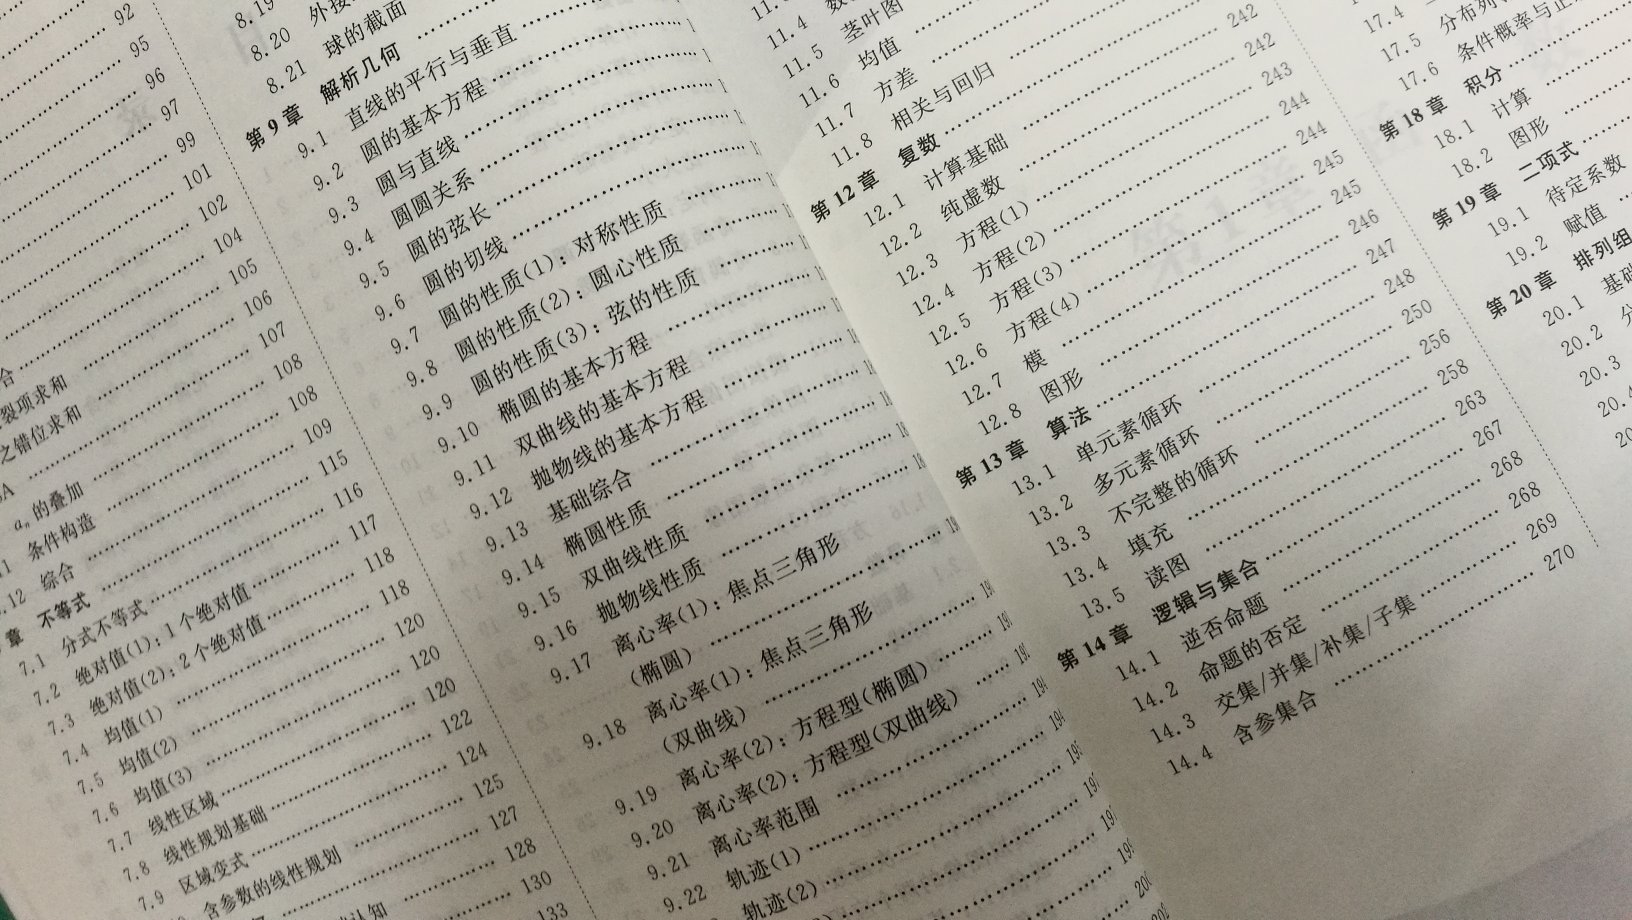 92
95
96
97
99
101
102
104
105
106
裂项求和 107
之错位求和 108
108
aₙ的叠加 109
条件构造 115
综合 116
章 不等式 117
7.1 分式不等式 118
7.2 绝对值(1):1个绝对值 118
7.3 绝对值(2):2个绝对值 120
7.4 均值(1) 120
7.5 均值(2) 120
7.6 均值(3) 122
7.7 线性区域 124
7.8 线性规划基础 125
7.9 区域变式 127
含参数的线性规划 128
130
133
8.19
8.20
8.21 球的截面
第9章 解析几何
9.1 直线的平行与垂直
9.2 圆的基本方程
9.3 圆与直线
9.4 圆圆关系
9.5 圆的弦长
9.6 圆的切线
9.7 圆的性质(1):对称性质
9.8 圆的性质(2):圆心性质
9.9 圆的性质(3):弦的性质
9.10 椭圆的基本方程
9.11 双曲线的基本方程
9.12 抛物线的基本方程
9.13 基础综合
9.14 椭圆性质
9.15 双曲线性质
9.16 抛物线性质
9.17 离心率(1):焦点三角形
(椭圆)
9.18 离心率(1):焦点三角形
(双曲线)
9.19 离心率(2):方程型(椭圆)
9.20 离心率(2):方程型(双曲线)
9.21 离心率范围
9.22 轨迹(1)
轨迹(2)
11.4
11.5 茎叶图
11.6 均值
11.7 方差
11.8 相关与回归 242
第12章 复数 242
12.1 计算基础 243
12.2 纯虚数 244
12.3 方程(1) 244
12.4 方程(2) 245
12.5 方程(3) 245
12.6 方程(4) 246
12.7 模 247
12.8 图形 248
第13章 算法 250
13.1 单元素循环 256
13.2 多元素循环 258
13.3 不完整的循环 263
13.4 填充 267
13.5 读图 268
第14章 逻辑与集合 268
14.1 逆否命题 269
14.2 命题的否定 270
14.3 交集/并集/补集/子集
14.4 含参集合
17.4
17.5 分布列
17.6 条件概率与正
第18章 积分
18.1 计算
18.2 图形
第19章 二项式
19.1 待定系数
19.2 赋值
第20章 排列组
20.1
20.2
20.3
20.4